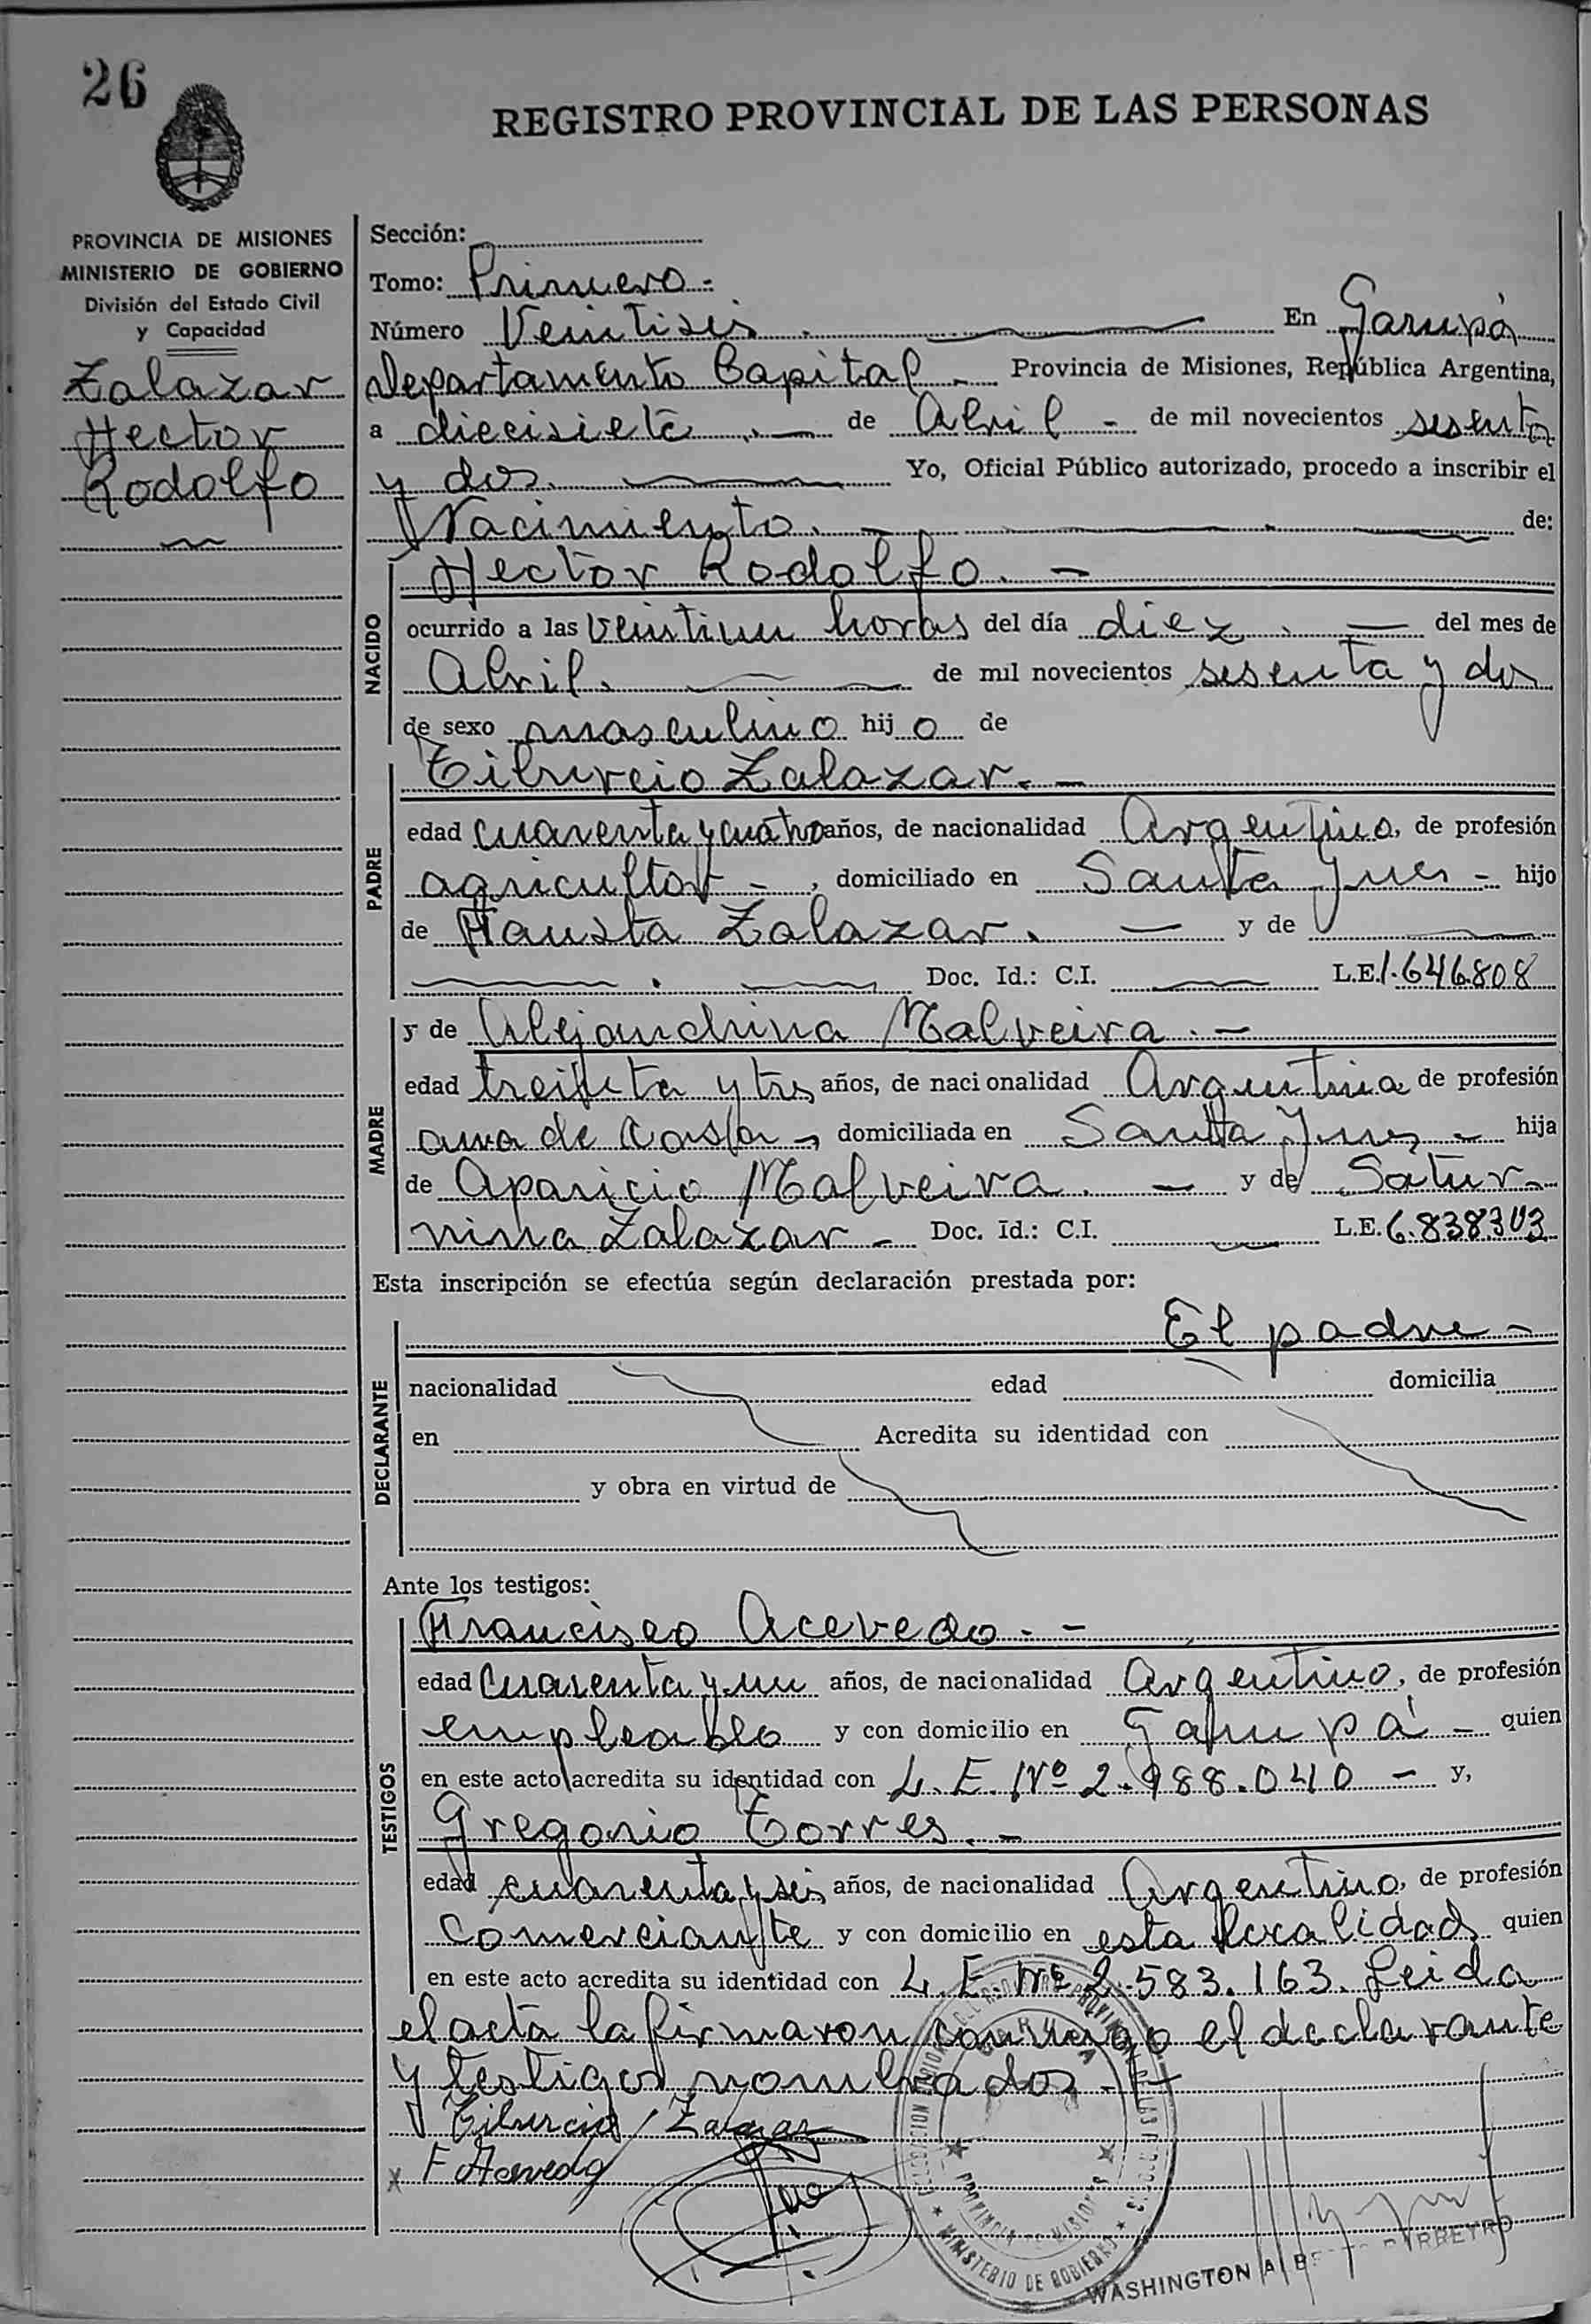 26
REGISTRO PROVINCIAL DE LAS PERSONAS
PROVINCIA DE MISIONES
MINISTERIO DE GOBIERNO
División del Estado Civil
y Capacidad
Zalazar
Hector
Rodolfo
Sección:
Tomo: Primero.-
Número Veintiseis. En Garupá
Departamento Capital - Provincia de Misiones, República Argentina,
a diecisiete .- de Abril - de mil novecientos sesenta
y dos. Yo, Oficial Público autorizado, procedo a inscribir el
Nacimiento. de:
NACIDO
Hector Rodolfo. -
ocurrido a las veintiun horas del día diez . - del mes de
Abril. de mil novecientos sesenta y dos
de sexo masculino hijo de
PADRE
Tiburcio Zalazar. -
edad cuarenta y cuatro años, de nacionalidad Argentino, de profesión
agricultor - , domiciliado en Santa Ynes - hijo
de Fausta Zalazar. - y de
Doc. Id.: C.I. L.E. 1.646.808
MADRE
y de Alejandrina Malveira. -
edad treinta y tres años, de nacionalidad Argentina de profesión
ama de casa -, domiciliada en Santa Ynes - hija
de Aparicio Malveira. - y de Satur-
nina Zalazar - Doc. Id.: C.I. L.E. 6.838.303
Esta inscripción se efectúa según declaración prestada por:
DECLARANTE
El padre -
nacionalidad edad domicilia
en Acredita su identidad con
y obra en virtud de
Ante los testigos:
TESTIGOS
Francisco Acevedo. -
edad cuarenta y un años, de nacionalidad Argentino, de profesión
empleado y con domicilio en Garupá - quien
en este acto acredita su identidad con L. E. Nº 2.988.040 - y,
Gregorio Torres. -
edad cuarenta y seis años, de nacionalidad Argentino, de profesión
Comerciante y con domicilio en esta localidad quien
en este acto acredita su identidad con L. E. Nº 2.583.163. Leida
el acta la firmaron conmigo el declarante
y testigos nombrados. -
Tiburcio Zalazar
F Acevedo
GARUPA
PROVINCIA DE MISIONES
MINISTERIO DE GOBIERNO
WASHINGTON